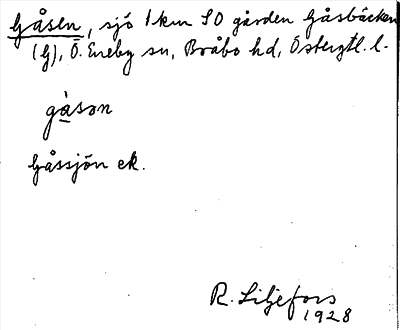 Gåsen, sjö 1 km SO gården Gåsbäcken
(G), Ö. Eneby sn, Bråbo hd, Östergtl. l.
gå̀sən
Gåssjön ek.
R. Liljefors
1928